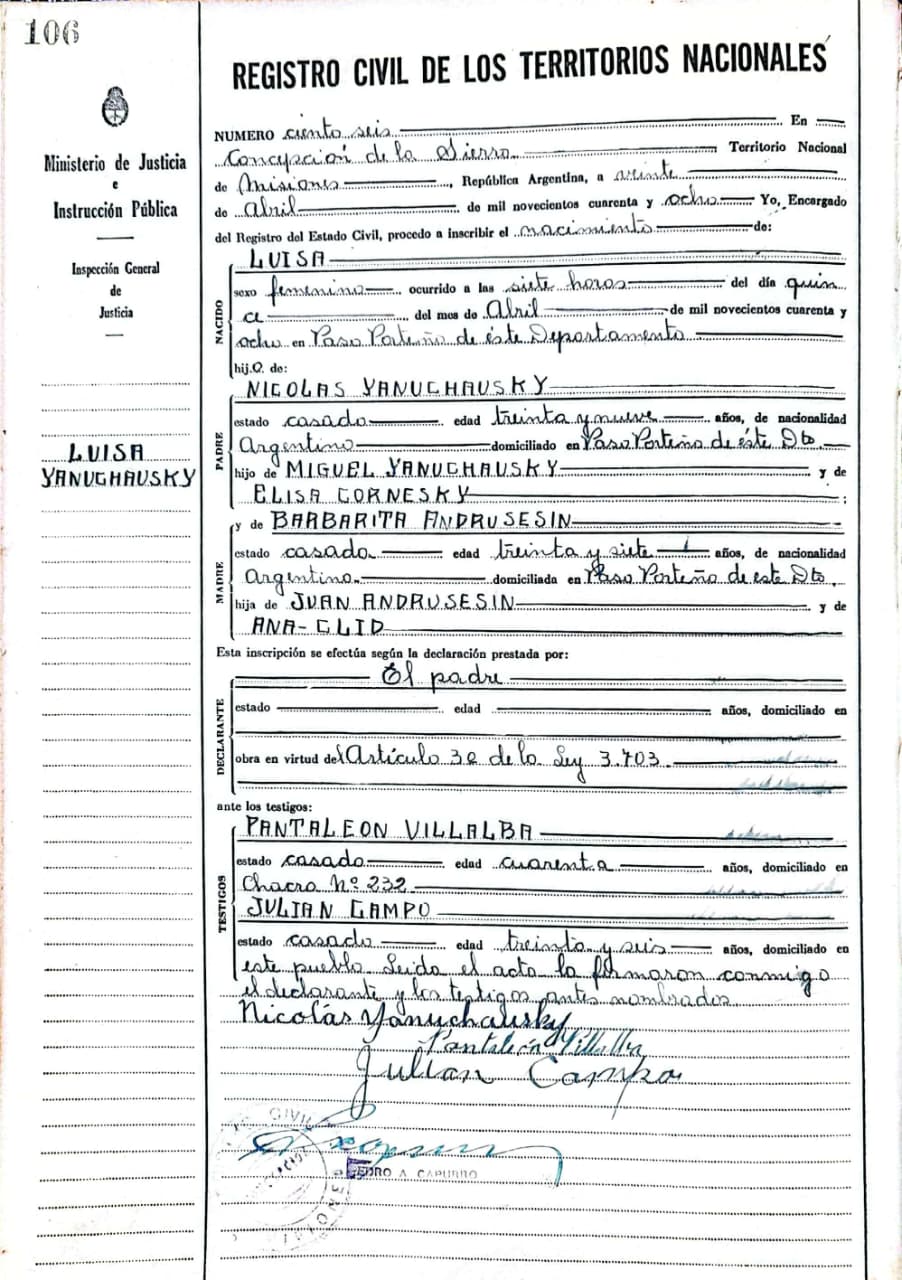 106
Ministerio de Justicia
e
Instrucción Pública
Inspección General
de
Justicia
LUISA
YANUCHAUSKY
REGISTRO CIVIL DE LOS TERRITORIOS NACIONALES
NUMERO ciento seis En
Concepción de la Sierra Territorio Nacional
de Misiones, República Argentina, a veinte
de Abril de mil novecientos cuarenta y ocho Yo, Encargado
del Registro del Estado Civil, procedo a inscribir el nacimiento de:
NACIDO
LUISA
sexo femenino ocurrido a las siete horas del día quin
ce del mes de Abril de mil novecientos cuarenta y
ocho en Paso Porteño de éste Departamento
hij.a. de:
PADRE
NICOLAS YANUCHAUSKY
estado casado edad treinta y nueve años, de nacionalidad
Argentino domiciliado en Paso Porteño de éste Dto
hijo de MIGUEL YANUCHAUSKY y de
ELISA CORNESKY ;
MADRE
y de BARBARITA ANDRUSESIN
estado casada edad treinta y siete años, de nacionalidad
Argentina. domiciliada en Paso Porteño de este Dto.
hija de JUAN ANDRUSESIN y de
ANA-CLID
Esta inscripción se efectúa según la declaración prestada por:
DECLARANTE
El padre
estado edad años, domiciliado en
obra en virtud del Artículo 32 de la Ley 3.703
ante los testigos:
TESTIGOS
PANTALEON VILLALBA
estado casado edad cuarenta años, domiciliado en
Chacra Nº 232
JULIAN CAMPO
estado casado edad treinta y seis años, domiciliado en
este pueblo. Leida el acta la firmaron conmigo
el declarante y los testigos antes nombrados
Nicolás Yanuchausky
Pantaleón Villalba
Julian Campo
CIVIL
PEDRO A. CAPURRO